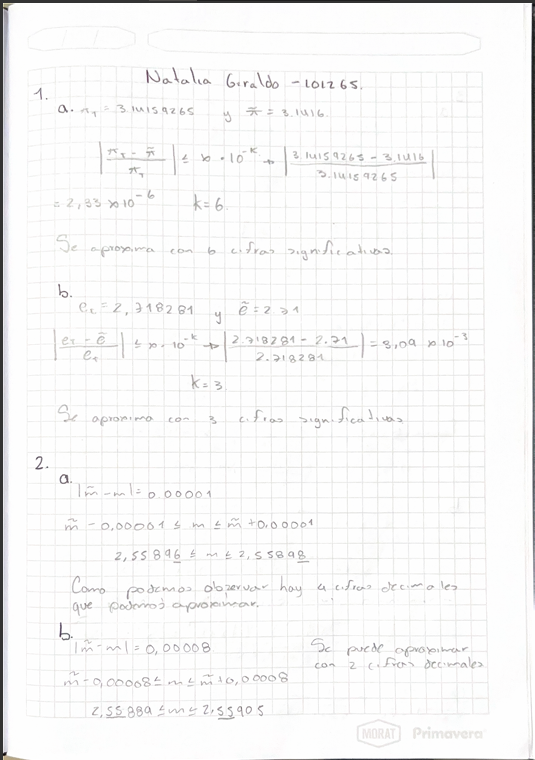 Natalia Giraldo - 101265.
1.
a. π_T = 3.14159265 y π̃ = 3.1416.
|π_T - π̃ / π_T| ≤ 10 · 10^-k → |3.14159265 - 3.1416 / 3.14159265|
= 2,33 x10^-6 k = 6
Se aproxima con 6 cifras significativas.
b.
e_t = 2,718281 y ẽ = 2.71
|e_t - ẽ / e_t| ≤ 10 · 10^-k → |2.718281 - 2.71 / 2.718281| = 3,09 x10^-3
k = 3
Se aproxima con 3 cifras significativas
2.
a.
|m̃ - m| = 0.00001
m̃ - 0,00001 ≤ m ≤ m̃ + 0,00001
2,55896 ≤ m ≤ 2,55898
Como podemos observar hay 4 cifras decimales
que podemos aproximar.
b.
|m̃ - m| = 0,00008
m̃ - 0,00008 ≤ m ≤ m̃ + 0,00008
2,55889 ≤ m ≤ 2,55905
Se puede aproximar
con 2 cifras decimales
MORAT Primavera